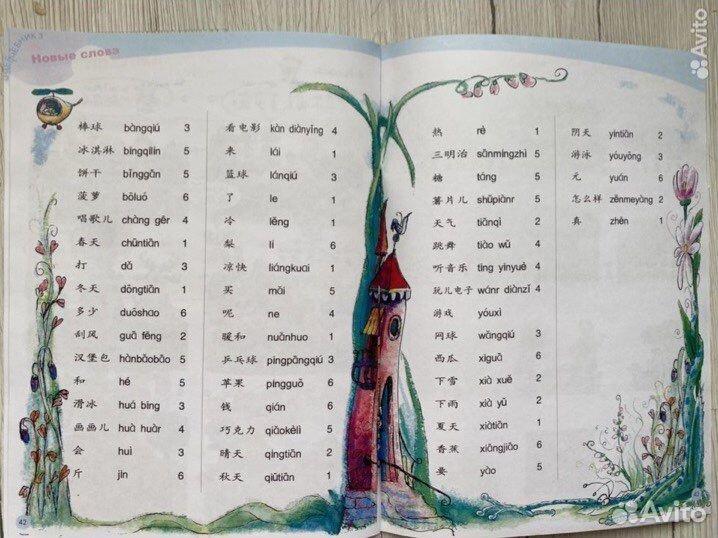 УЧЕБНИК 3
Новые слова
棒球 bàngqiú 3
冰淇淋 bīngqílín 5
饼干 bǐnggān 5
菠萝 bōluó 6
唱歌儿 chàng gēr 4
春天 chūntiān 1
打 dǎ 3
冬天 dōngtiān 1
多少 duōshao 6
刮风 guā fēng 2
汉堡包 hànbǎobāo 5
和 hé 5
滑冰 huá bīng 3
画画儿 huà huàr 4
会 huì 3
斤 jīn 6
看电影 kàn diànyǐng 4
来 lái 1
篮球 lánqiú 3
了 le 1
冷 lěng 1
梨 lí 6
凉快 liángkuai 1
买 mǎi 5
呢 ne 4
暖和 nuǎnhuo 1
乒乓球 pīngpāngqiú 3
苹果 píngguǒ 6
钱 qián 6
巧克力 qiǎokèlì 5
晴天 qíngtiān 2
秋天 qiūtiān 1
42
热 rè 1
三明治 sānmíngzhì 5
糖 táng 5
薯片儿 shǔpiànr 5
天气 tiānqì 2
跳舞 tiào wǔ 4
听音乐 tīng yīnyuè 4
玩儿电子 wánr diànzǐ 4
游戏 yóuxì
网球 wǎngqiú 3
西瓜 xīguā 6
下雪 xià xuě 2
下雨 xià yǔ 2
夏天 xiàtiān 1
香蕉 xiāngjiāo 6
要 yào 5
阴天 yīntiān 2
游泳 yóuyǒng 3
元 yuán 6
怎么样 zěnmeyàng 2
真 zhēn 1
Avito
Avito